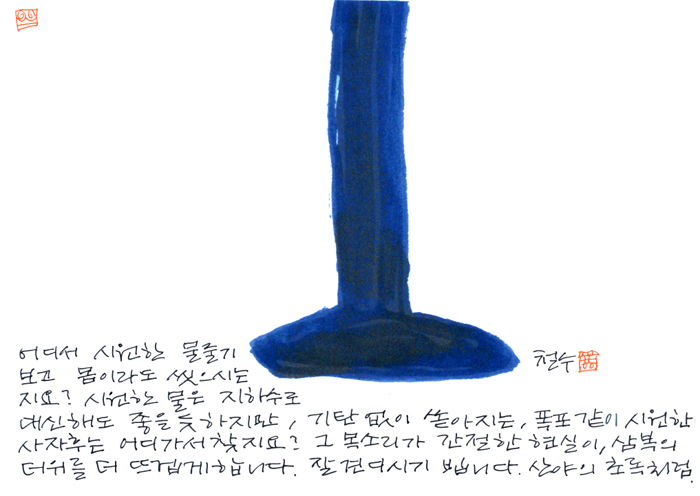 철수
어디서 시원한 물줄기
보고 몸이라도 씻으시는
지요? 시원한 물은 지하수로
대신해도 좋을듯하지만, 기탄 없이 쏟아지는, 폭포같이 시원한
사자후는 어디가서 찾지요? 그 목소리가 간절한 현실이, 삼복의
더위를 더 뜨겁게 합니다. 잘 견디시기 빕니다. 산야의 초록처럼.